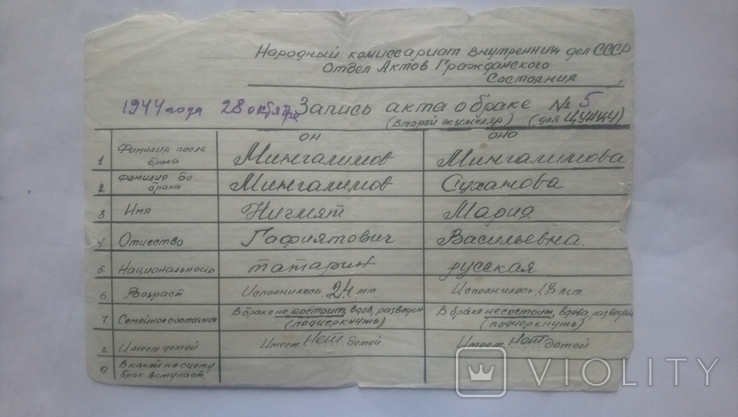 Народный комиссариат внутренних дел СССР
Отдел Актов Гражданского
Состояния
1944 года 28 октября Запись акта о браке № 5
(второй экземпляр) (для ЦУНЦУ)
он она
1 Фамилия после брака Мингалимов Мингалимова
2 Фамилия до брака Мингалимов Суханова
3 Имя Нигмят Мария
4 Отчество Гафиятович Васильевна.
5 Национальность татарин русская
6 Возраст Исполнилось 24 лет Исполнилось 18 лет.
7 Семейное состояние В браке не состоит, вдов, разведен (подчеркнуть) В браке не состоит, вдова, разведена (подчеркнуть)
8 Имеет детей Имеет Нет детей Имеет Нет детей
9 В какой по счету брак вступает
VIOLITY